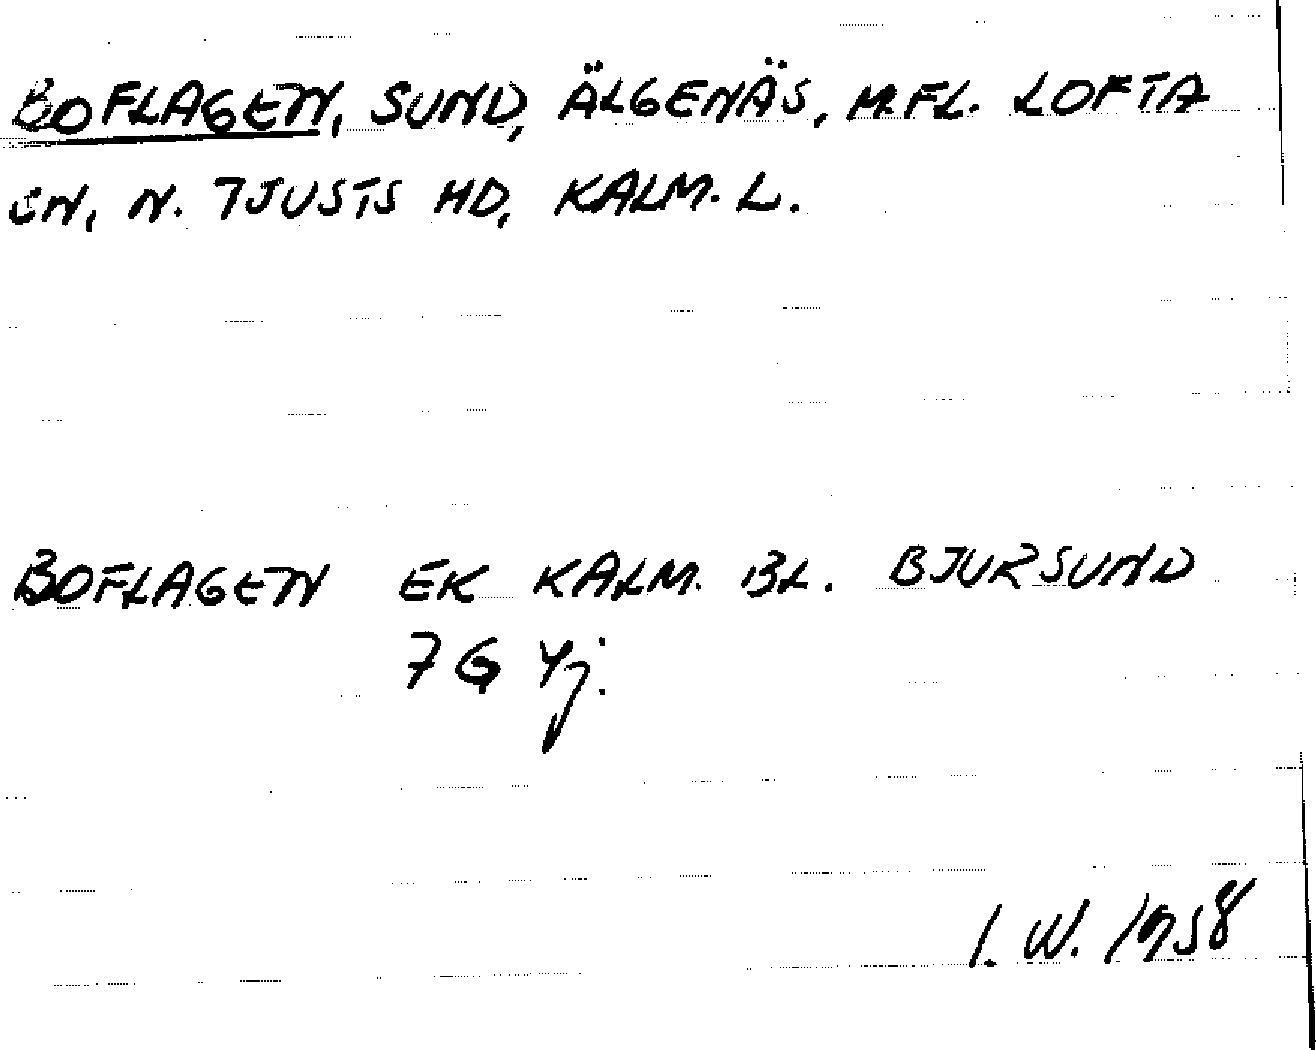 BOFLAGEN, SUND, ÄLGENÄS, M.FL. LOFTA
SN, N. TJUSTS HD, KALM. L.
BOFLAGEN EK KALM. BL. BJURSUND
7G 4j.
I. W. 1958